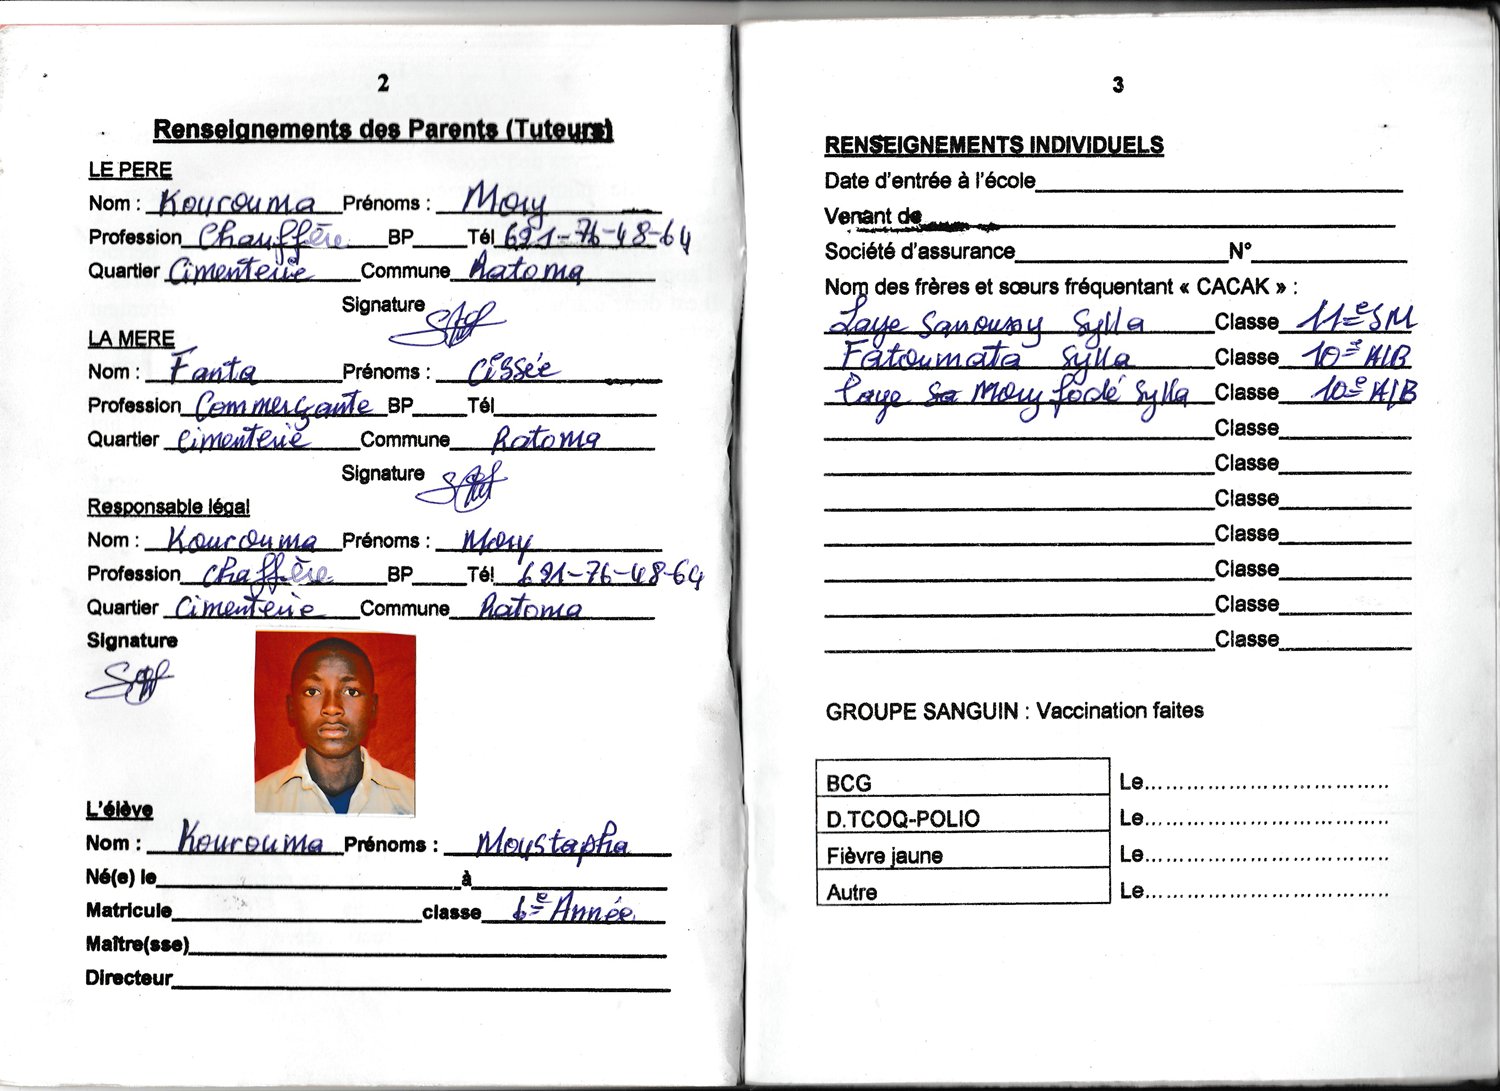 2
Renseignements des Parents (Tuteurs)
LE PERE
Nom : Kourouma Prénoms : Mory
Profession Chauffère BP Tél 621-76-48-64
Quartier Cimenterie Commune Ratoma
Signature
LA MERE
Nom : Fanta Prénoms : Cissée
Profession Commerçante BP Tél
Quartier Cimenterie Commune Ratoma
Signature
Responsable légal
Nom : Kourouma Prénoms : Mory
Profession Chaffère BP Tél 621-76-48-64
Quartier Cimenterie Commune Ratoma
Signature
L'élève
Nom : Kourouma Prénoms : Moustapha
Né(e) le à
Matricule classe 6e Année
Maître(sse)
Directeur
3
RENSEIGNEMENTS INDIVIDUELS
Date d'entrée à l'école
Venant de
Société d'assurance N°
Nom des frères et sœurs fréquentant « CACAK » :
Laye Sanoussy Sylla Classe 11e SM
Fatoumata Sylla Classe 10e A/B
Laye Mory fodé Sylla Classe 10e A/B
Classe
Classe
Classe
Classe
Classe
Classe
Classe
GROUPE SANGUIN : Vaccination faites
BCG Le
D.TCOQ-POLIO Le
Fièvre jaune Le
Autre Le